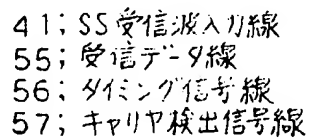 41; SS受信波入力線
55; 受信データ線
56; タイミング信号線
57; キャリヤ検出信号線